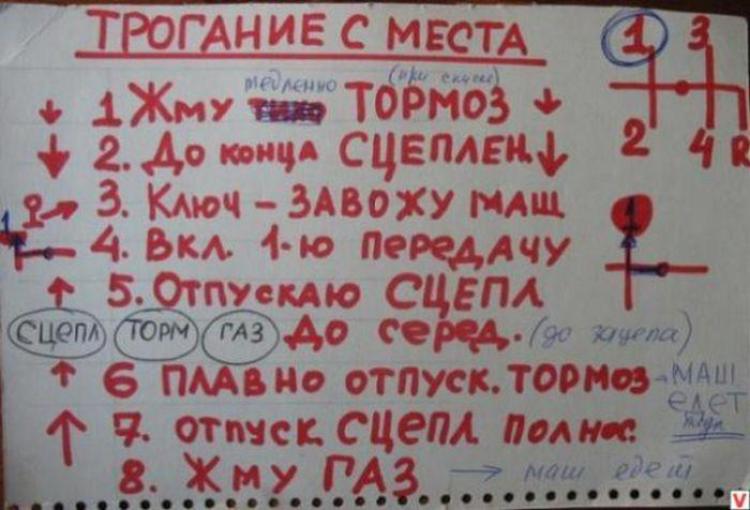 ТРОГАНИЕ С МЕСТА
1 3
2 4 R
медленно (при спуске)
↓ 1 Жму ТОРМОЗ ↓
↓ 2. До конца СЦЕПЛЕН. ↓
→ 3. Ключ – ЗАВОЖУ МАШ
1 4. Вкл. 1-ю передачу
1
↑ 5. Отпускаю СЦЕПЛ
СЦЕПЛ ТОРМ ГАЗ До серед. (до зацепа)
↑ 6 ПЛАВНО отпуск. ТОРМОЗ - МАШ
ЕДЕТ
↑ 7. отпуск. СЦЕПЛ полнос.
8. Жму ГАЗ → маш едет
V